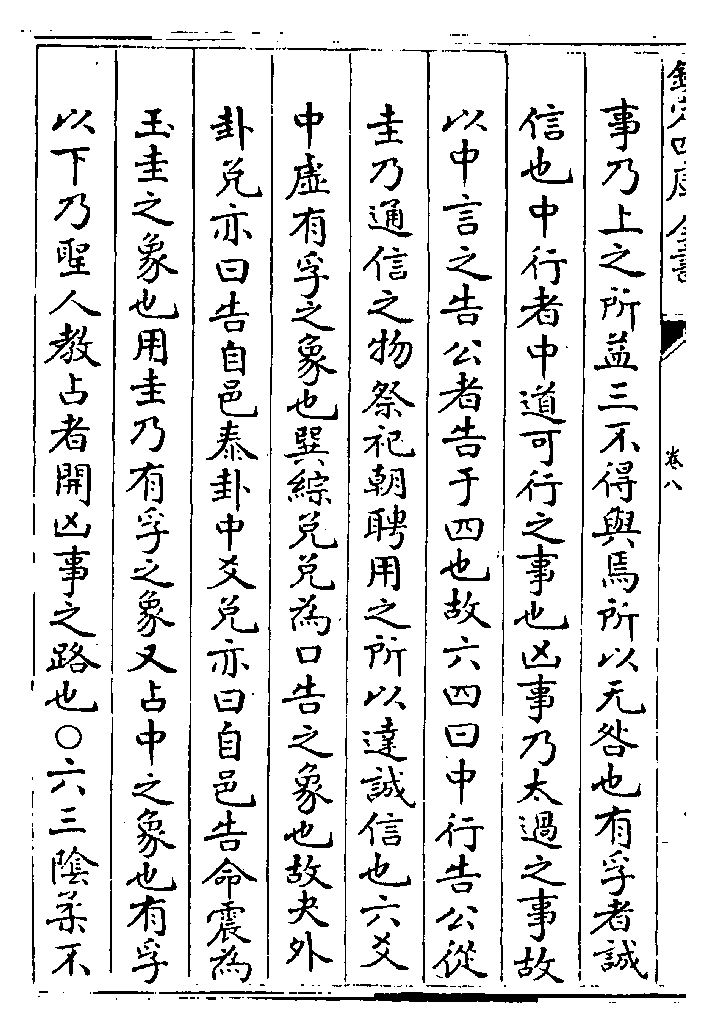 欽定四庫全書
卷八
事乃上之所益三不得與焉所以无咎也有孚者誠
信也中行者中道可行之事也凶事乃太過之事故
以中言之告公者告于四也故六四曰中行告公從
圭乃通信之物祭祀朝聘用之所以達誠信也六爻
中虛有孚之象也巽綜兌兌為口告之象也故夬外
卦兌亦曰告自邑泰卦中爻兌亦曰自邑告命震為
玉圭之象也用圭乃有孚之象又占中之象也有孚
以下乃聖人教占者開凶事之路也○六三陰柔不